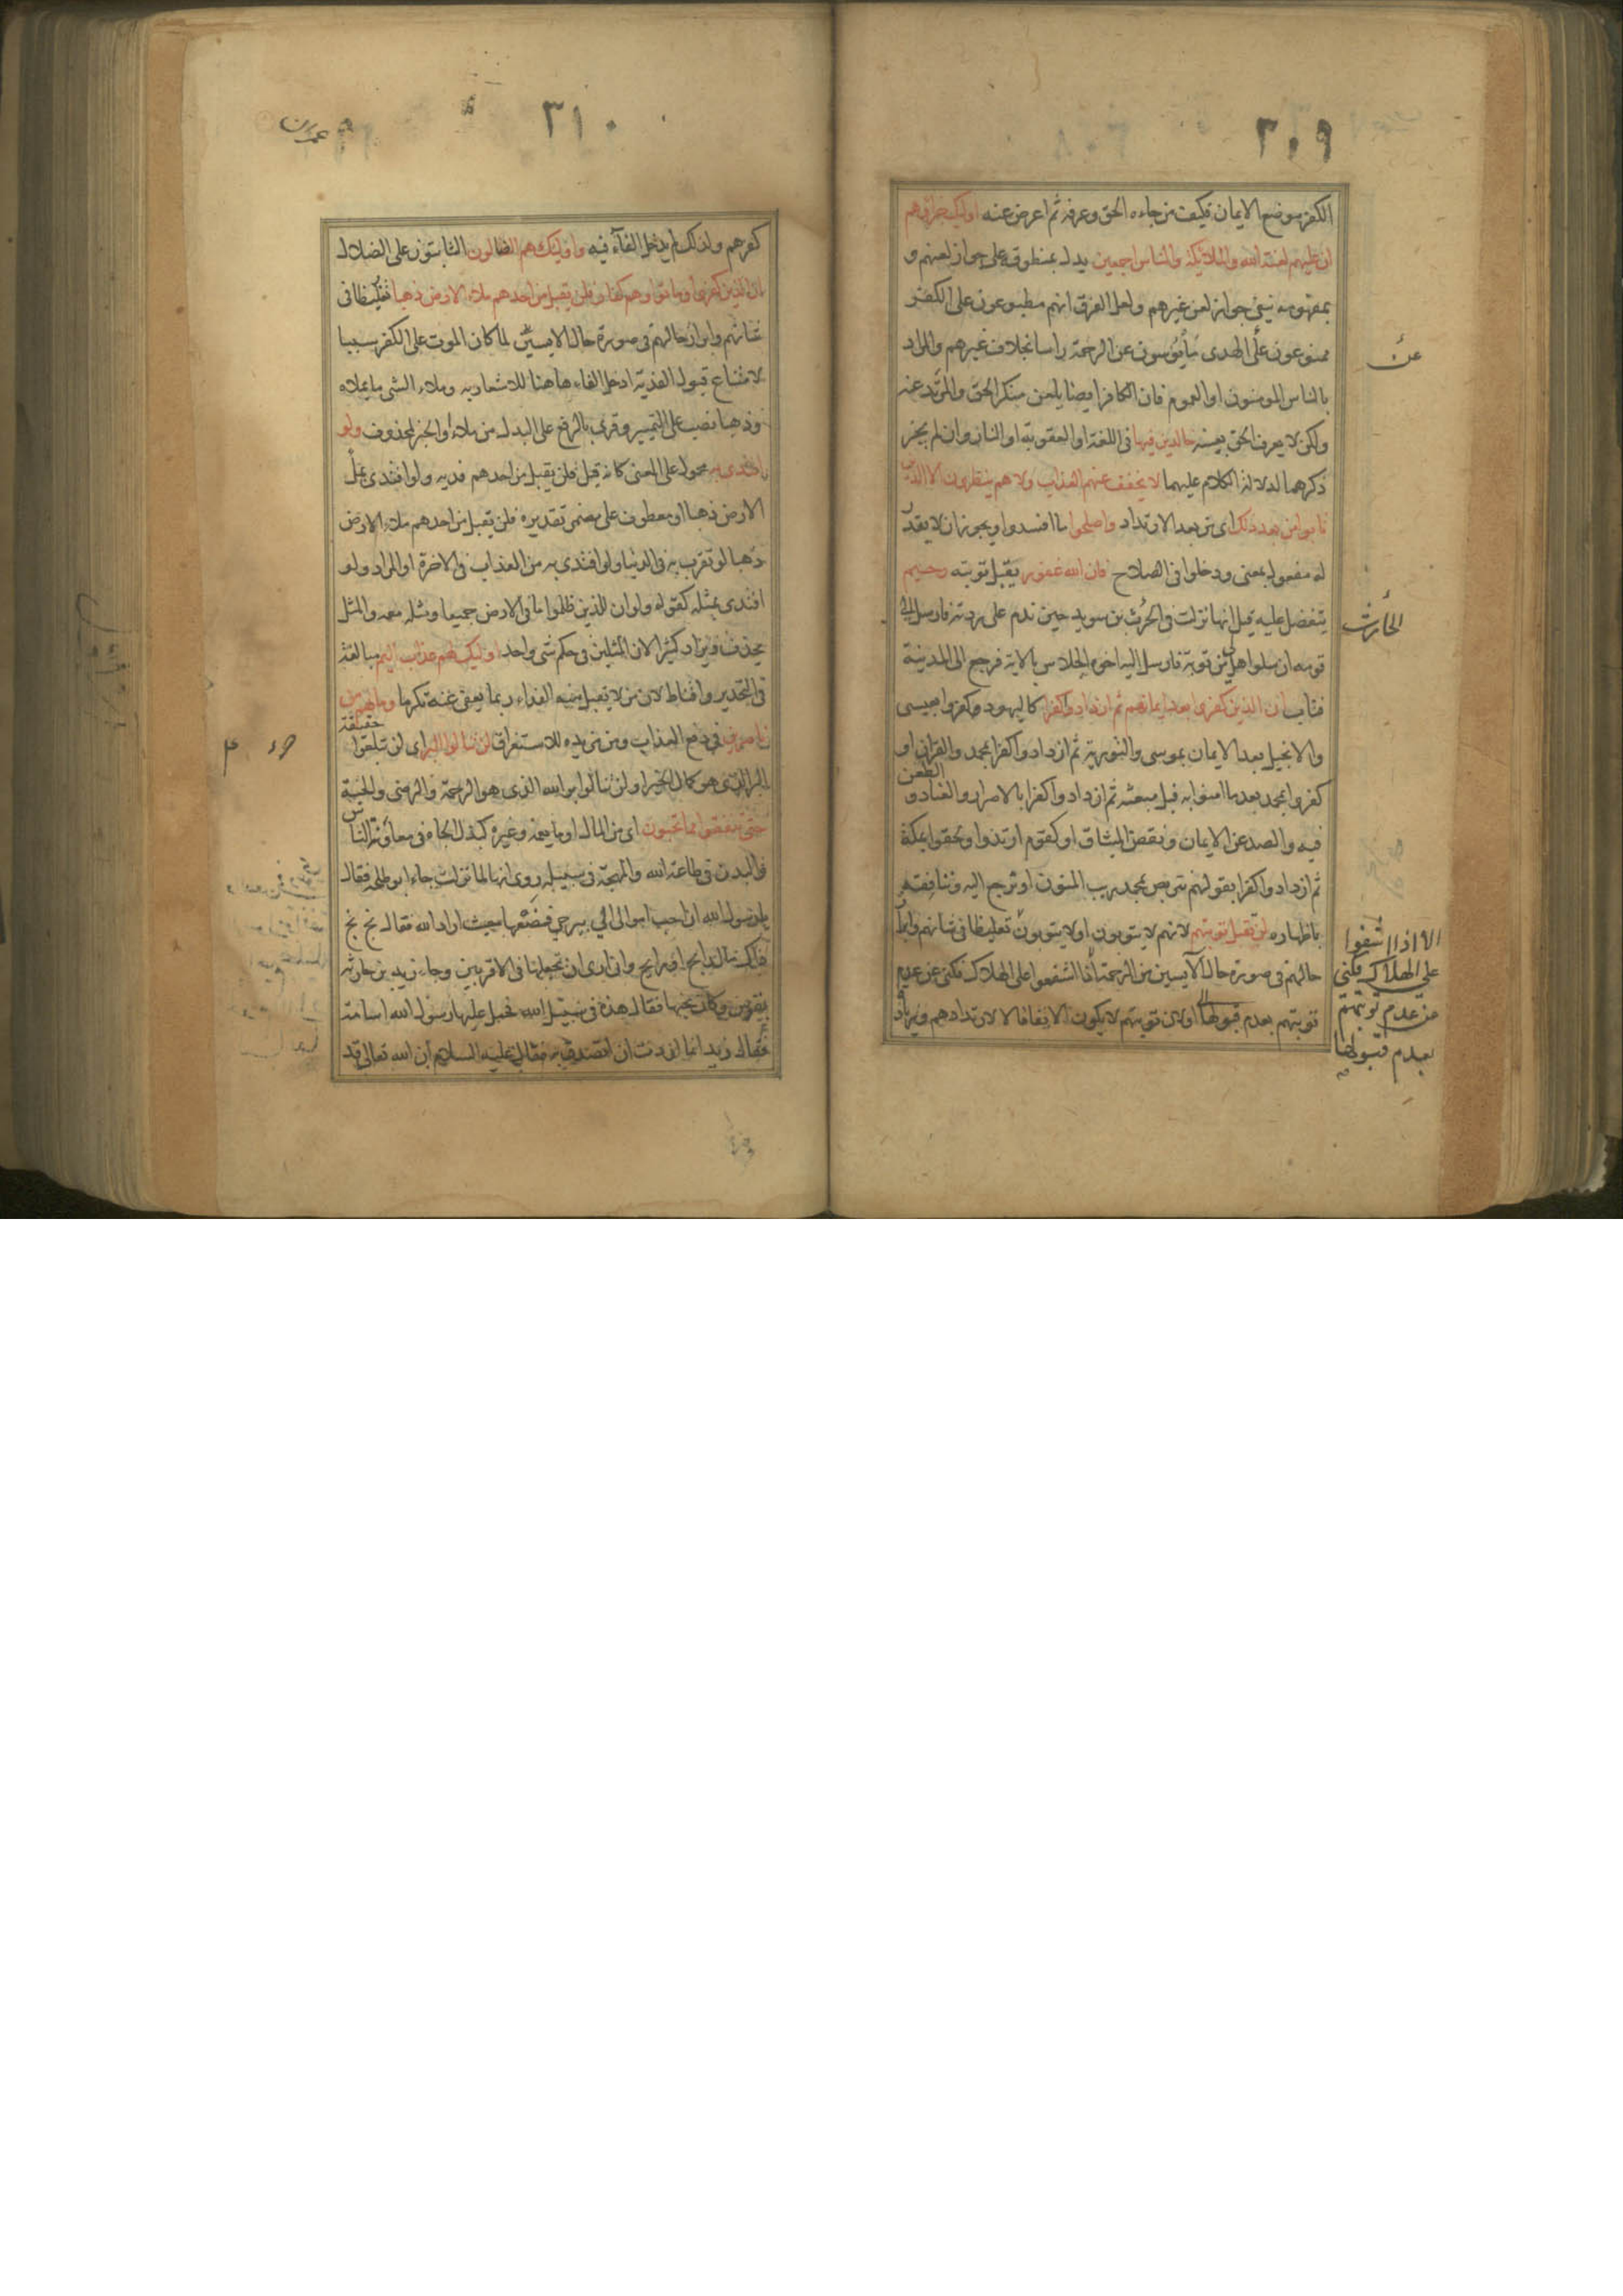 ٣٠٩
الكفر موضع الايمان فكيف من جاءه الحق وعرفه ثم اعرض عنه اوليك جزاؤهم
ان عليهم لعنة الله والملائيكة والناس اجمعين يدل بمنطوقه على جواز لعنهم و
بمفهومه ينفى جواز لعن غيرهم ولعل الفرق انهم مطبوعون على الكفر
ممنوعون على الهدى مأيوسون عن الرحمة راسا بخلاف غيرهم والمراد
عن
بالناس المومنون او العموم فان الكافر ايضا يلعن منكر الحق والمرتد عنه
ولكن لا يعرف الحق بعينه خالدين فيها فى اللعنة او العقوبة او النار وان لم يجز
ذكرهما لدلالة الكلام عليهما لا يخفف عنهم العذاب ولا هم ينظرون الا الذين
تابوا من بعد ذلك اى من بعد الارتداد واصلحوا ما افسدوا ويجوز ان لا يقدر
له مفعول بمعنى ودخلوا فى الصلاح فان الله غفور يقبل توبته رحيم
يتفضل عليه قيل انها نزلت فى الحرث بن سويد حين ندم على ردته فارسل الى
الحارث
قومه ان سلوا هل من توبة فارسل اليه اخوه الجلاس بالاية فرجع الى المدينة
فتاب ان الذين كفروا بعد ايمانهم ثم ازدادوا كفرا كاليهود كفروا بعيسى
والانجيل بعد الايمان بموسى والتورية ثم ازدادوا كفرا بمحمد والقران او
كفروا بمحمد بعد ما امنوا به قبل مبعثه ثم ازدادوا كفرا بالاصرار والعناد و
الطعن
فيه والصد عن الايمان ونقض الميثاق او كقوم ارتدوا ولحقوا بمكة
ثم ازدادوا كفرا بقولهم نتربص بمحمد ريب المنون او نرجع اليه وننافقه
باظهاره لن تقبل توبتهم لانهم لا يتوبون او لا يتوبون تعليظا فى شانهم وابراز
حالهم فى صورة حال الآيسين من الرحمة اذا اشفوا على الهلاك فكنى عن عدم
توبتهم بعدم قبولها او لان توبتهم لا يكون الا نفاقا لا لارتدادهم وزيادة
الا اذا اشفوا
على الهلاك فكنى
عن عدم توبتهم
بعدم قبولها
٣١٠
عمران
كفرهم ولذلك لم يدخل الفآء فيه واوليك هم الضالون الثابتون على الضلال
ان الذين كفروا وماتوا وهم كفار فلن يقبل من احدهم ملاء الارض ذهبا تغليظا فى
شانهم وابراز حالهم فى صورة حال الايسين لما كان الموت على الكفر سببا
لامتناع قبول الفدية ادخل الفاء هاهنا للاشعار به وملاء الشى ما يملاه
وذهبا نصب على التمييز وقرى بالرفع على البدل من ملاء او الخبر لمحذوف ولو
افتدى به محمول على المعنى كانه قيل فلن يقبل من احدهم فدية ولو افتدى بملء
الارض ذهبا او معطوف على مضمر تقديره فلن يقبل من احدهم ملاء الارض
ذهبا لو تقرب به فى الدنيا ولو افتدى به من العذاب فى الاخرة او المراد ولو
افتدى بمثله كقوله ولو ان للذين ظلموا ما فى الارض جميعا ومثله معه والمثل
يحذف ويراد كثيرا لان المثلين فى حكم شى واحد اوليك لهم عذاب اليم مبالغة
فى التحذير واقناط لان من لا تقبل منه الفداء ربما يعفى عنه تكرما وما لهم من
ناصرين فى دفع العذاب ومن مزيده للاستغراق لن تنالوا البر اى لن تبلغوا
حقيقة
البر الذى هو كمال الخير او لن تنالوا بر الله الذى هو الرحمة والرضى والجنة
حتى تنفقوا مما تحبون اى من المال او ما يعمه وغيره كبذل الجاه فى معاونة الناس
والبدن فى طاعة الله والمهجة فى سبيله روى انها لما نزلت جاء ابو طلحة فقال
يا رسول الله ان احب اموالى الى بيرحى فضعها حيث اراد الله فقال بخ بخ
ذاك مال رابح او رايح وانى ارى ان تجعلها فى الاقربين وجاء زيد بن حارثه
بفرس وكان يحبها فقال هذه فى سبيل الله فحمل عليها رسول الله اسامة
فقال زيد انما اردت ان اتصدق به فقال عليه السلام ان الله تعالى قد